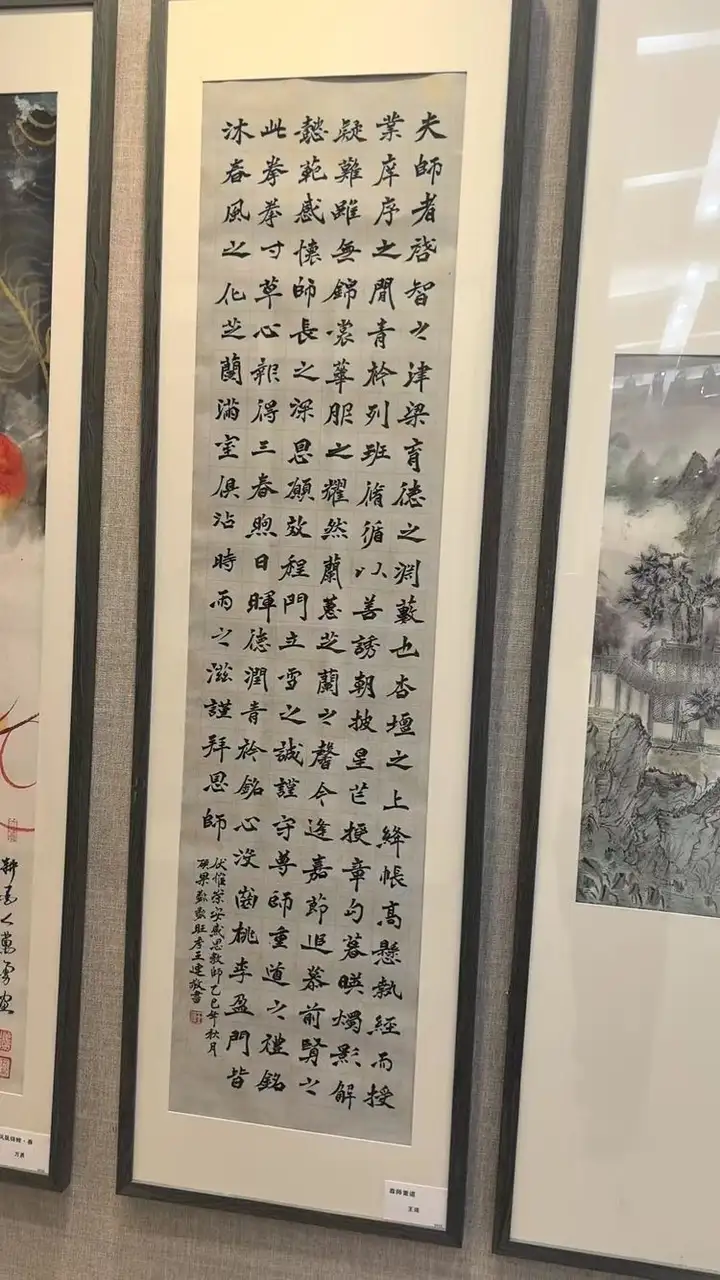 夫師者啓智之津梁育德之渊藪也杏壇之上絳帳高懸執經而授
業庠序之間青衿列班循循以善誘朝披星芒授章句暮暎燭影解
疑難雖無錦裳華服之耀然蘭蕙芝蘭之馨今逢嘉節追慕前賢之
懿範感懷師長之深恩願效程門立雪之誠謹守尊師重道之禮銘
此拳拳寸草心報得三春煦日暉德潤青衿銘心没齒桃李盈門皆
沐春風之化芝蘭滿室俱沾時雨之滋謹拜恩師
伏惟崇安感恩教師乙巳年秋月
碩果
王建敬書
尊師重道
万勇